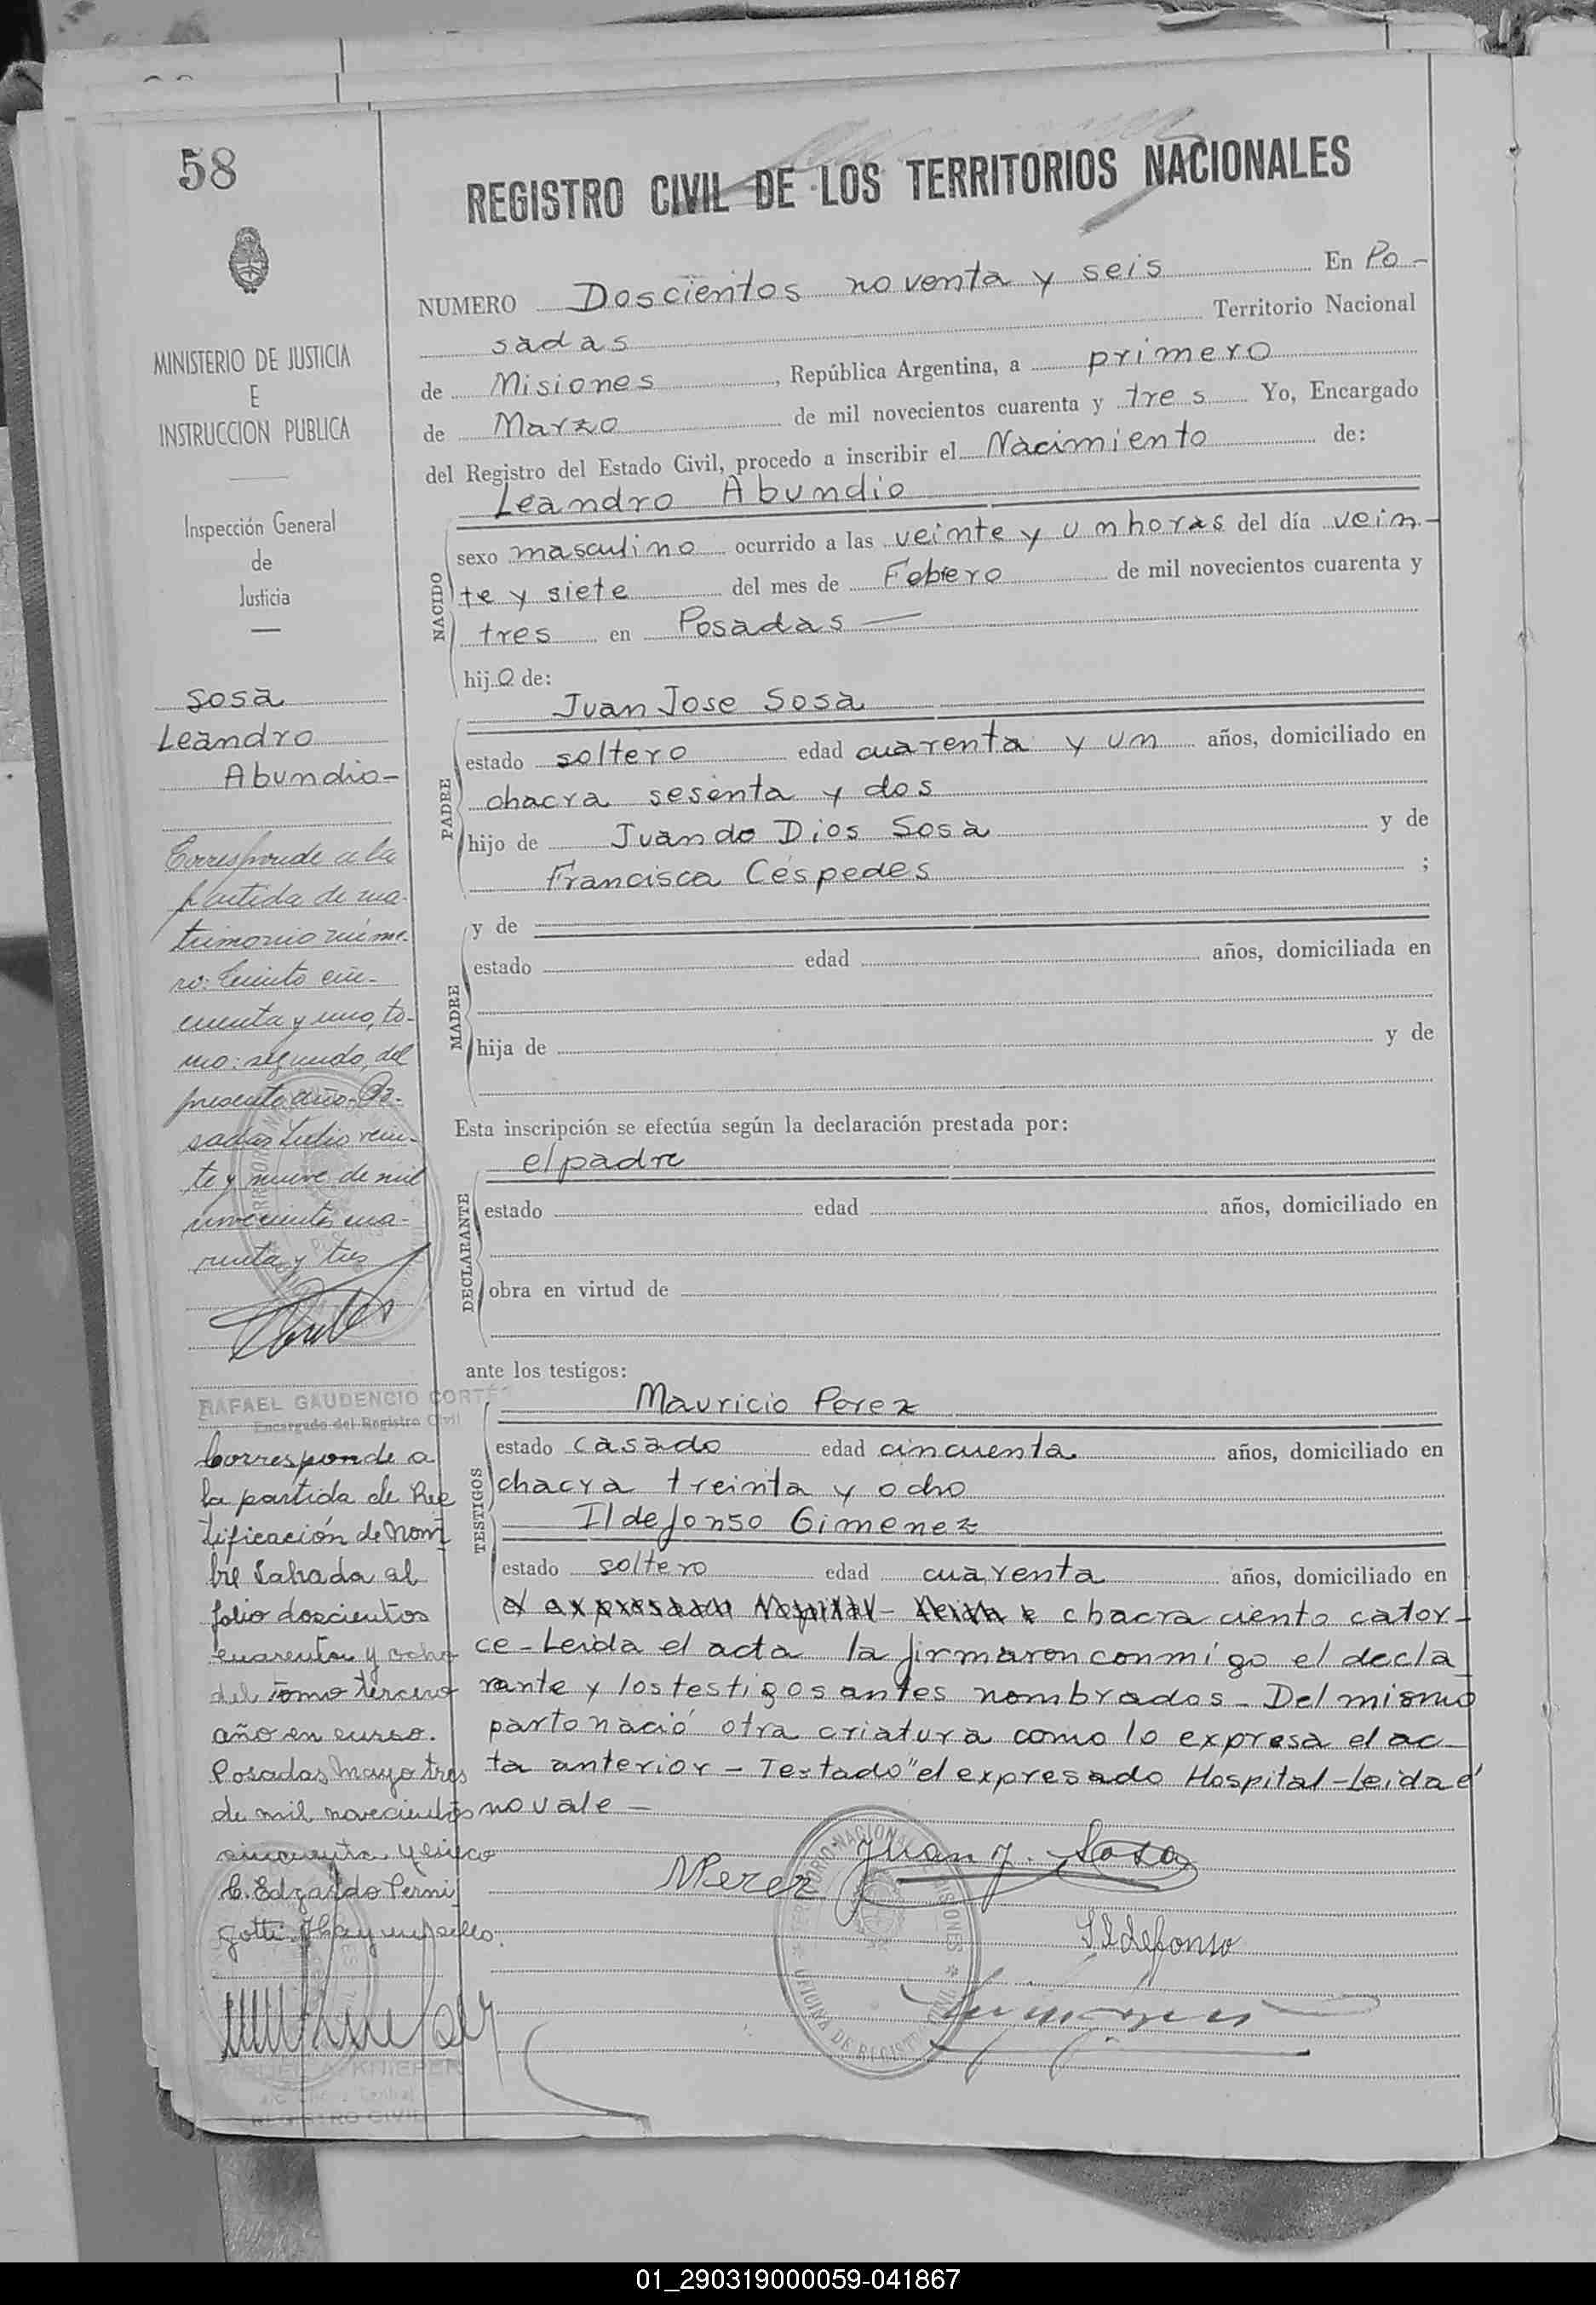 58
REGISTRO CIVIL DE LOS TERRITORIOS NACIONALES
NUMERO Doscientos noventa y seis En Po-
sadas Territorio Nacional
de Misiones, República Argentina, a primero
de Marzo de mil novecientos cuarenta y tres Yo, Encargado
del Registro del Estado Civil, procedo a inscribir el Nacimiento de:
Leandro Abundio
NACIDO
sexo masculino ocurrido a las veinte y un horas del día vein-
te y siete del mes de Febrero de mil novecientos cuarenta y
tres en Posadas —
hijo de:
Juan Jose Sosa
PADRE
estado soltero edad cuarenta y un años, domiciliado en
chacra sesenta y dos
hijo de Juan de Dios Sosa y de
Francisca Céspedes ;
MADRE
y de
estado edad años, domiciliada en
hija de y de
Esta inscripción se efectúa según la declaración prestada por:
el padre
DECLARANTE
estado edad años, domiciliado en
obra en virtud de
ante los testigos:
TESTIGOS
Mauricio Perez
estado casado edad cincuenta años, domiciliado en
chacra treinta y ocho
Ildefonso Gimenez
estado soltero edad cuarenta años, domiciliado en
el expresado Hospital - Leida e chacra ciento cator-
ce - Leida el acta la firmaron conmigo el decla
rante y los testigos antes nombrados - Del mismo
parto nació otra criatura como lo expresa el ac-
ta anterior - Testado "el expresado Hospital - Leida e"
no vale —
MPerez
Juan J. Sosa
Ildefonso
MINISTERIO DE JUSTICIA
E
INSTRUCCION PUBLICA
Inspección General
de
Justicia
Sosa
Leandro
Abundio-
Corresponde a la
partida de ma-
trimonio núme-
ro: Ciento cin-
cuenta y uno, to-
mo: segundo, del
presente año- Po-
sadas Julio vein-
te y nueve de mil
novecientos cua-
renta y tres
RAFAEL GAUDENCIO CORTÉS
Encargado del Registro Civil
Corresponde a
la partida de Rec
tificación de Nom
bre Labrada al
folio doscientos
cuarenta y ocho
del Tomo tercero
año en curso.
Posadas Mayo tres
de mil novecientos
cincuenta y cinco
C. Edgardo Perni
gotti. Hay un sello.
KNIEPER
REGISTRO CIVIL
TERRITORIO NACIONAL MISIONES
OFICINA DE REGISTRO CIVIL
01_290319000059-041867